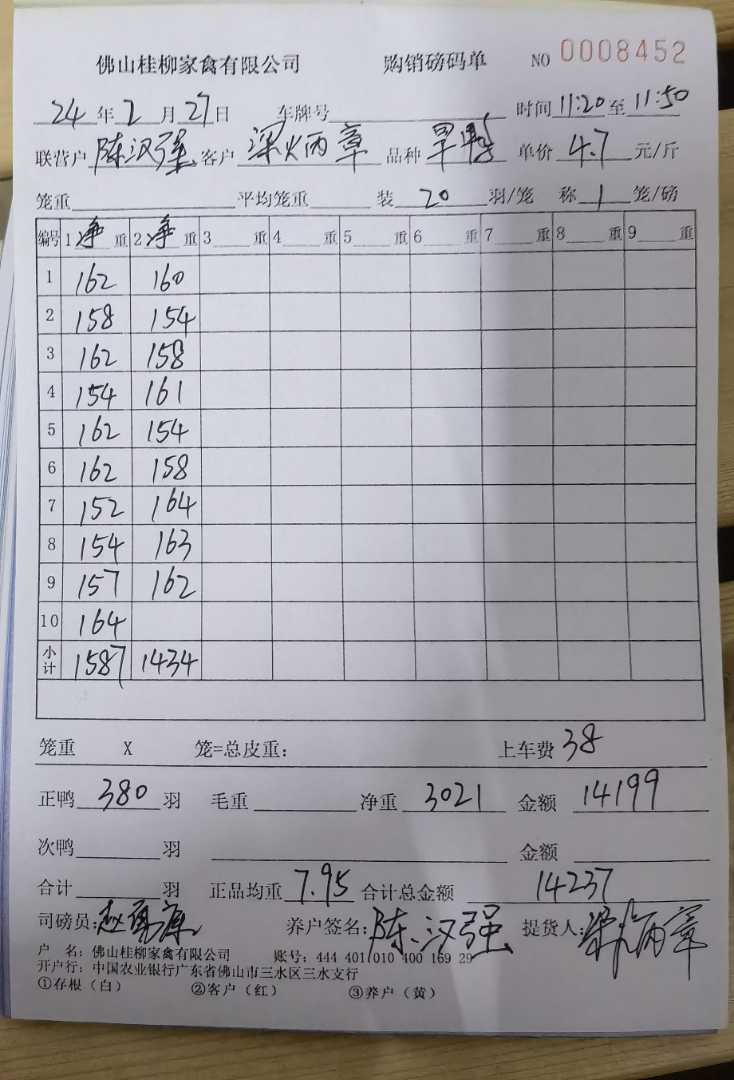 佛山桂柳家禽有限公司 购销磅码单 NO 0008452
24年2月27日 车牌号 时间11:20至11:50
联营户 陈汉强 客户 梁火丙章 品种 旱鸭 单价 4.7 元/斤
笼重 平均笼重 装 20 羽/笼 称 1 笼/磅
编号 1 净 重 2 净 重 3 重 4 重 5 重 6 重 7 重 8 重 9 重
1 162 160
2 158 154
3 162 158
4 154 161
5 162 154
6 162 158
7 152 164
8 154 163
9 157 162
10 164
小计 1587 1434
笼重 X 笼=总皮重: 上车费 38
正鸭 380 羽 毛重 净重 3021 金额 14199
次鸭 羽 金额
合计 羽 正品均重 7.95 合计总金额 14237
司磅员: 养户签名: 陈汉强 提货人: 梁火丙章
户 名: 佛山桂柳家禽有限公司 账号: 444 401 010 400 169 29
开户行: 中国农业银行广东省佛山市三水区三水支行
①存根（白） ②客户（红） ③养户（黄）